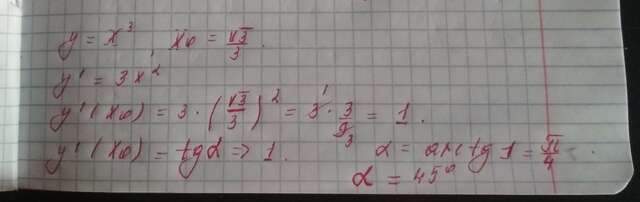 y = x³, x₀ = √3/3.
y' = 3x²
y'(x₀) = 3 · (√3/3)² = 3 · 3/9 = 1.
y'(x₀) = tgα => 1. α = arctg 1 = π/4.
α = 45°